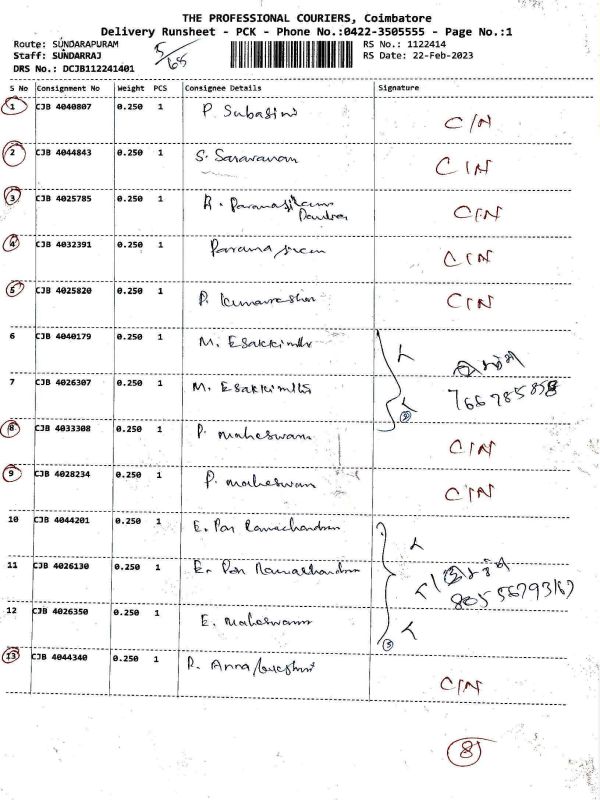 THE PROFESSIONAL COURIERS, Coimbatore
Delivery Runsheet - PCK - Phone No.:0422-3505555 - Page No.:1
Route: SUNDARAPURAM
RS No.: 1122414
Staff: SUNDARRAJ
5/68
RS Date: 22-Feb-2023
DRS No.: DCJB112241401
S No Consignment No Weight PCS Consignee Details Signature
1 CJB 4040807 0.250 1 P. Subasini C/N
2 CJB 4044843 0.250 1 S. Saravanan C/N
3 CJB 4025785 0.250 1 C/N
4 CJB 4032391 0.250 1 C/N
5 CJB 4025820 0.250 1 C/N
6 CJB 4040179 0.250 1 M. Esakkimuthu
7 CJB 4026307 0.250 1 M. Esakkimuthu
8 CJB 4033308 0.250 1 P. Maheswari C/N
9 CJB 4028234 0.250 1 P. Maheswari C/N
10 CJB 4044201 0.250 1 E. Pon Ramachandran
11 CJB 4026130 0.250 1 E. Pon Ramachandran
12 CJB 4026350 0.250 1 E. Maheswari
13 CJB 4044340 0.250 1 C/N
8